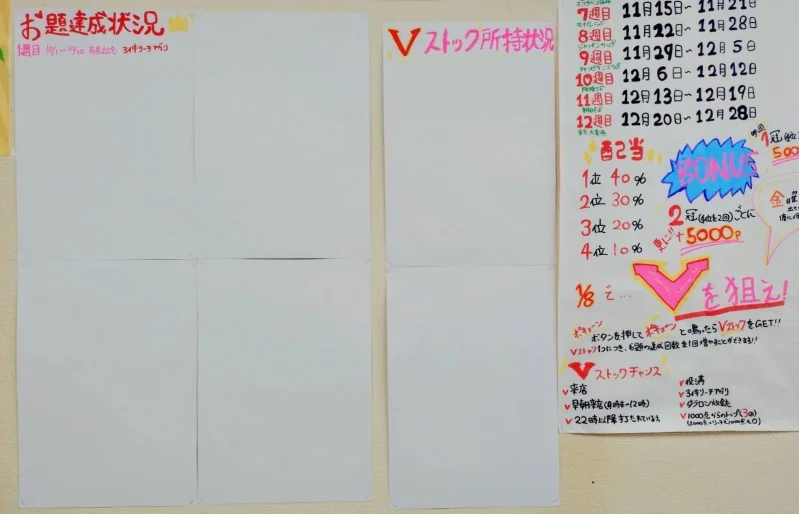 お題達成状況
1週目
Vストック所持状況
7週目 11月15日~11月21日
8週目 11月22日~11月28日
9週目 11月29日~12月5日
10週目 12月6日~12月12日
11週目 12月13日~12月19日
12週目 12月20日~12月28日
配当
1位 40%
2位 30%
3位 20%
4位 10%
BONUS
1冠
500
2冠(4位を2回)ごとに
更に!! +5000P
金曜
1/8で...
Vを狙え!
ボタンを押してポキューンと鳴ったらVストックをGET!!
Vストック1つにつき、お題の達成回数を1回増やすことができます!!
Vストックチャンス
V来店
V早朝来店(9時~12時)
V22時以降打たれている方
V役満
V3イキリーチアガリ